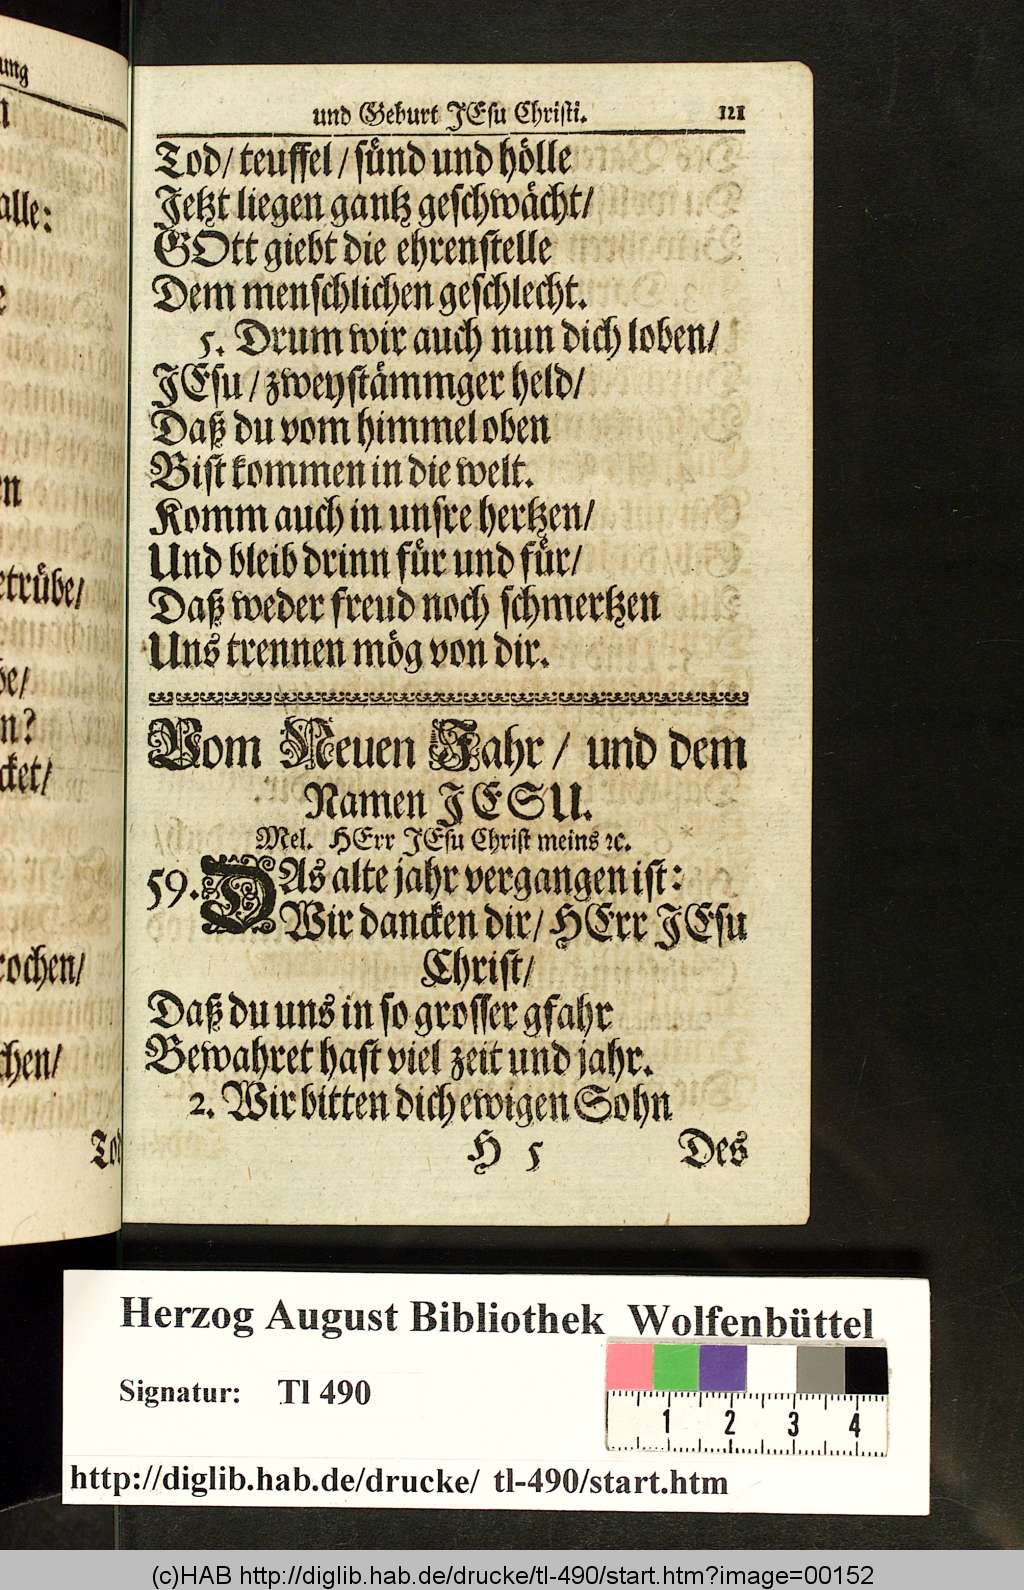 ung
alle:
en
etrübe/
be/
n?
cket/
rochen/
chen/
Tod
und Geburt JEsu Christi. 121
Tod/ teuffel/ sünd und hölle
Jetzt liegen gantz geschwächt/
GOtt giebt die ehrenstelle
Dem menschlichen geschlecht.
5. Drum wir auch nun dich loben/
JEsu/ zweystämmger held/
Daß du vom himmel oben
Bist kommen in die welt.
Komm auch in unsre hertzen/
Und bleib drinn für und für/
Daß weder freud noch schmertzen
Uns trennen mög von dir.
Vom Neuen Jahr/ und dem
Namen JESU.
Mel. HErr JEsu Christ meins ꝛc.
59. DAs alte jahr vergangen ist:
Wir dancken dir/ HErr JEsu
Christ/
Daß du uns in so grosser gfahr
Bewahret hast viel zeit und jahr.
2. Wir bitten dich ewigen Sohn
H 5 Des
Herzog August Bibliothek Wolfenbüttel
Signatur: Tl 490
1 2 3 4
http://diglib.hab.de/drucke/ tl-490/start.htm
(c)HAB http://diglib.hab.de/drucke/tl-490/start.htm?image=00152